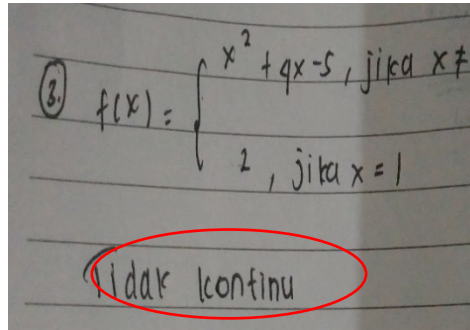 3. f(x) = { x² + 4x - 5, jika x ≠
2, jika x = 1
Tidak kontinu